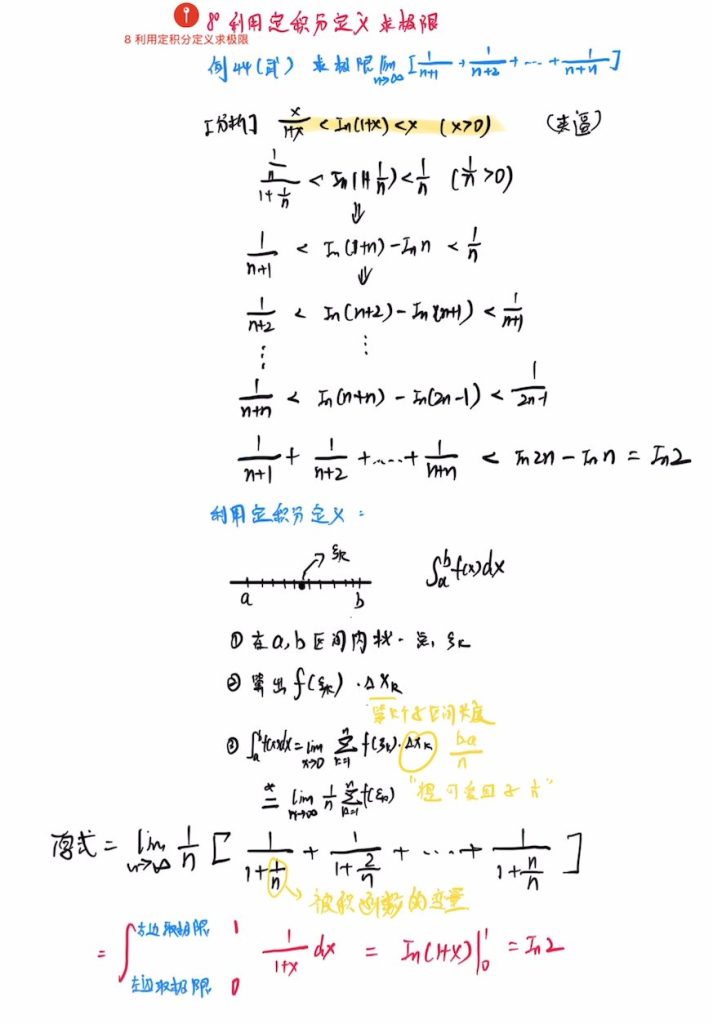 8° 利用定积分定义求极限
8 利用定积分定义求极限
例44(武) 求极限 lim n→∞ [1/(n+1) + 1/(n+2) + … + 1/(n+n)]
[分析] x/(1+x) < ln(1+x) < x (x>0) (夹逼)
(1/n)/(1+1/n) < ln(1+1/n) < 1/n (1/n >0)
⇓
1/(n+1) < ln(1+n) - ln n < 1/n
⇓
1/(n+2) < ln(n+2) - ln(n+1) < 1/(n+1)
⋮ ⋮
1/(n+n) < ln(n+n) - ln(2n-1) < 1/(2n-1)
1/(n+1) + 1/(n+2) + …… + 1/(n+n) < ln2n - ln n = ln2
利用定积分定义:
ξk
a b ∫_a^b f(x)dx
① 在a,b区间内找一点 ξk
② 算出 f(ξk)·Δxk
第k个子区间长度
③ ∫_a^b f(x)dx = lim λ→0 Σ_{k=1}^n f(ξk)·Δxk (b-a)/n
= lim n→∞ 1/n Σ_{k=1}^n f(ξk)
原式 = lim n→∞ 1/n [1/(1+1/n) + 1/(1+2/n) + … + 1/(1+n/n)]
被积函数的变量
= ∫ 右边取极限 1 左边取极限 0 1/(1+x) dx = ln(1+x)|_0^1 = ln2